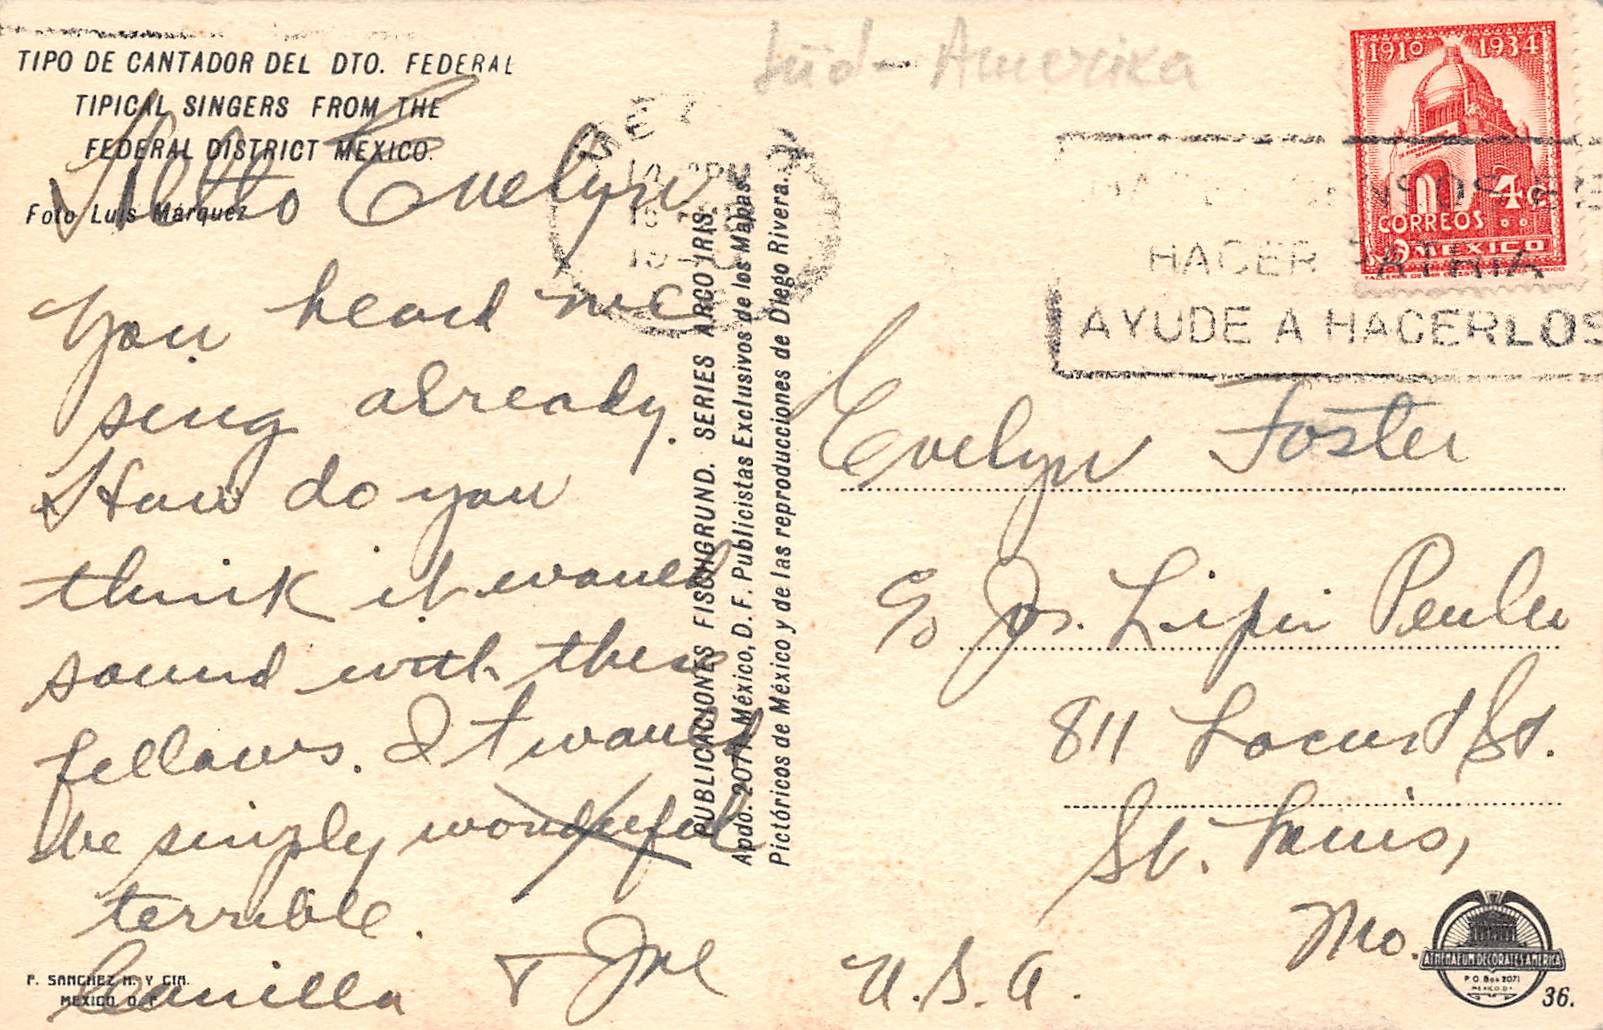 TIPO DE CANTADOR DEL DTO. FEDERAL
TIPICAL SINGERS FROM THE
FEDERAL DISTRICT MEXICO.
Foto Luis Márquez
Hello Evelyn
You heard me
sing already.
How do you
think it would
sound with these
fellows. It would
be simply wonderful
terrible.
Camilla & Joe
F. SANCHEZ H. Y CIA.
MEXICO, D. F.
PUBLICACIONES FISCHGRUND. SERIES ARCO IRIS.
Apdo. 2071. México, D. F. Publicistas Exclusivos de los Mapas
Pictóricos de México y de las reproducciones de Diego Rivera.
Süd-Amerika
1910 1934
4c
CORREOS
MEXICO
HACER PATRIA
AYUDE A HACERLOS
Evelyn Foster
c/o Jos. Lipic
811 Locust St.
St. Louis,
Mo.
U.S.A.
ATHENAEUM DECORATES AMERICA
P.O. Box 2071
MEXICO. D.F.
36.